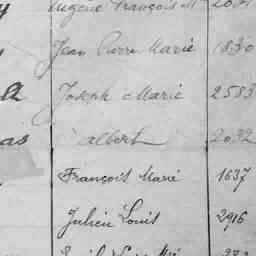 Eugène François M
Jean Pierre Marie 1830
a Joseph Marie 2583
as Albert 2032
François Marie 1637
Julien Louis 2916